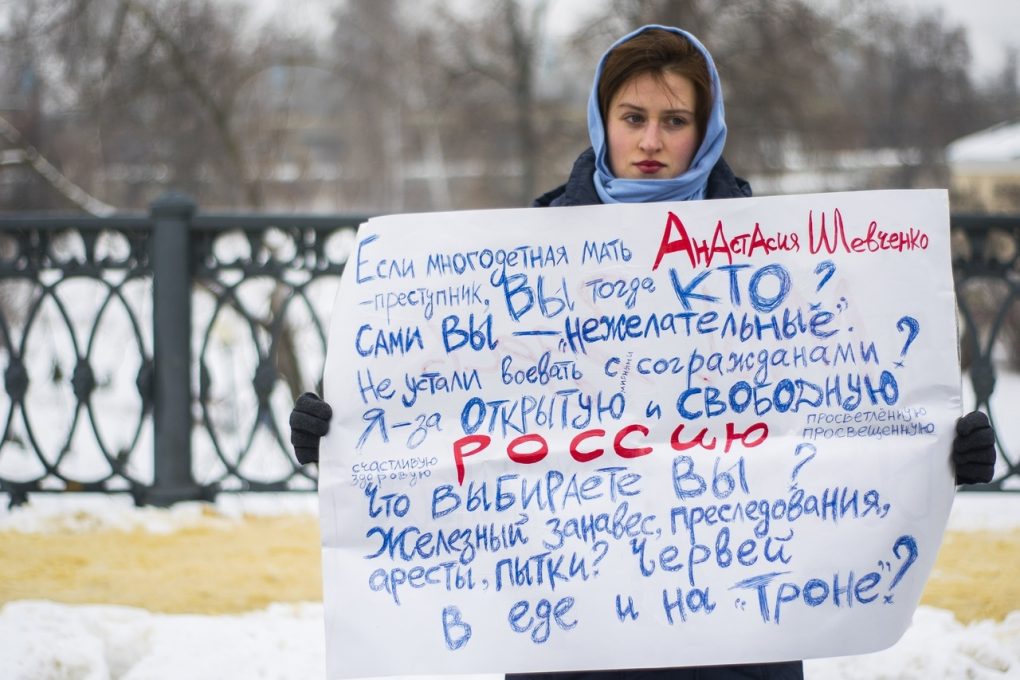 Если многодетная мать Анастасия Шевченко
-преступник, Вы тогда КТО?
Сами Вы — "нежелательные".
Не устали воевать с согражданами?
мирными
Я-за открытую и свободную
просветлённую
просвещённую
Россию
счастливую
здоровую
Что выбираете Вы?
Железный занавес, преследования,
аресты, пытки? Червей
в еде и на "троне"?